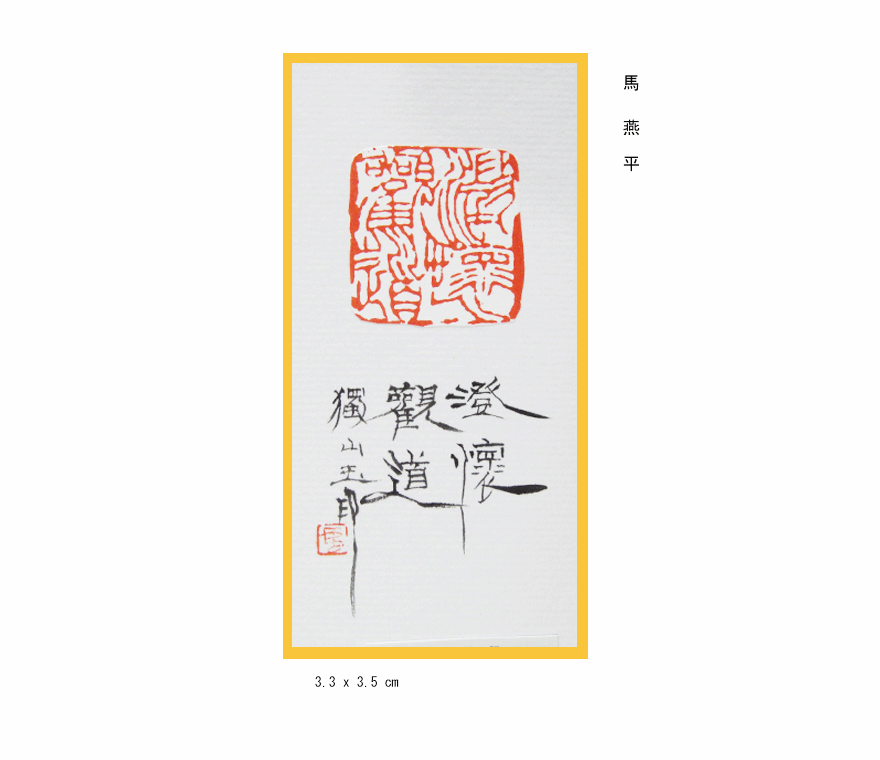 馬燕平
澄懷
觀道
澄懷
觀道
獨山玉印
3.3 x 3.5 cm